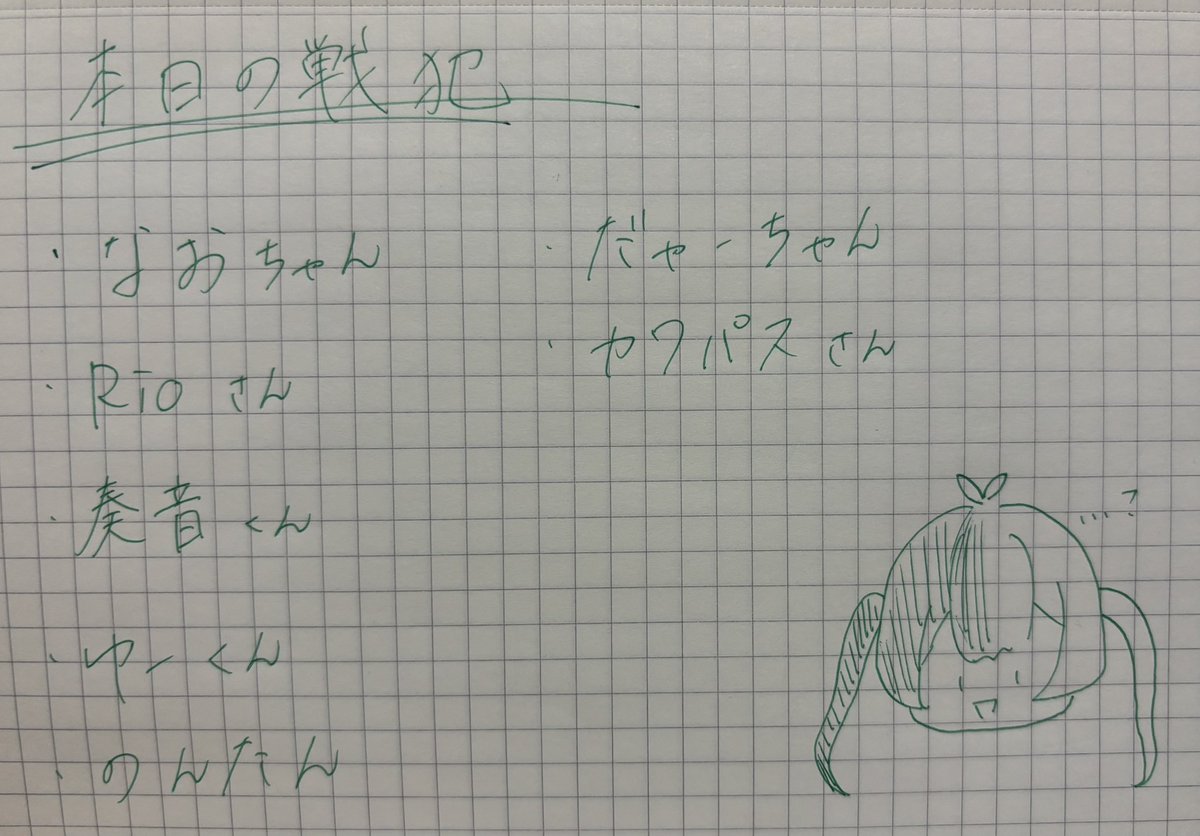 本日の戦犯
・なおちゃん
・Rioさん
・奏音くん
・ゆーくん
・のんたん
・だやーちゃん
・ヤワパスさん
…?